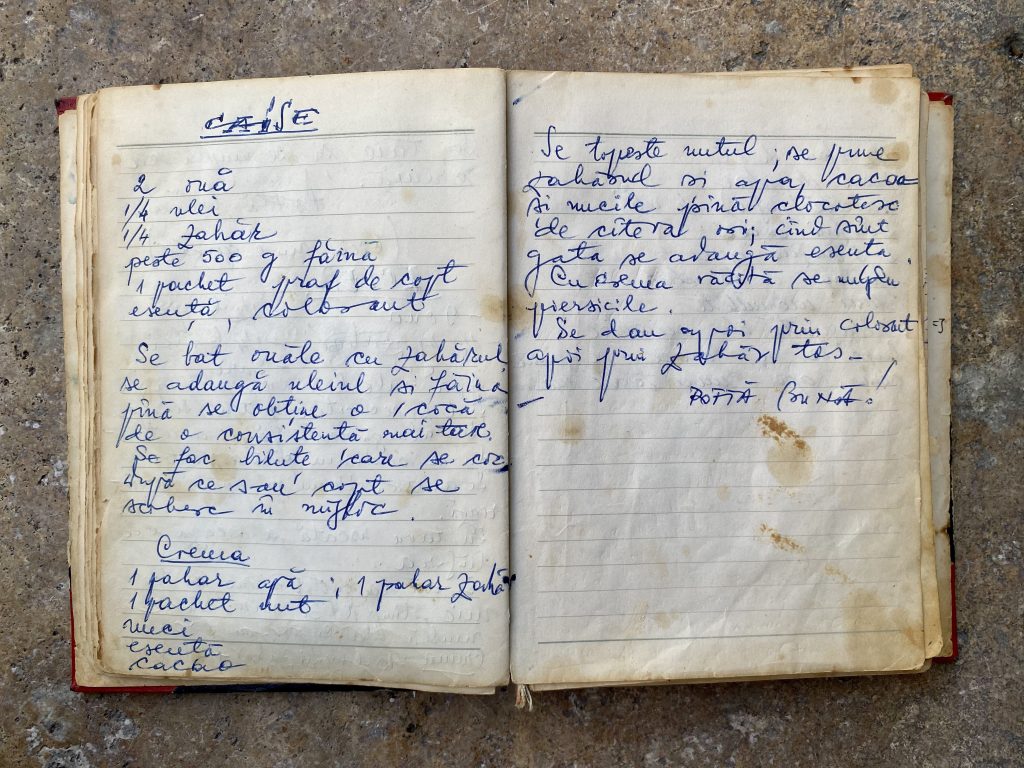 CAISE
2 ouă
1/4 ulei
1/4 zahăr
peste 500 g făină
1 pachet praf de copt
esență, colorant
Se bat ouăle cu zahărul,
se adaugă uleiul si făina
pînă se obține o cocă
de o consistentă mai tare.
Se fac bilute care se coc
după ce sau copt se
scobesc în mijloc.
Crema
1 pahar apă ; 1 pahar zahăr
1 pachet unt
nuci
esență
cacao
Se topeste untul ; se pune
zahărul si apa, cacao
si nucile pînă clocotesc
de cîteva ori; cînd sînt
gata se adaugă esenta.
Cu crema răcită se umplu
piersicile.
Se dau apoi prin colorant
apoi prin zahăr tos.
POFTĂ BUNĂ!